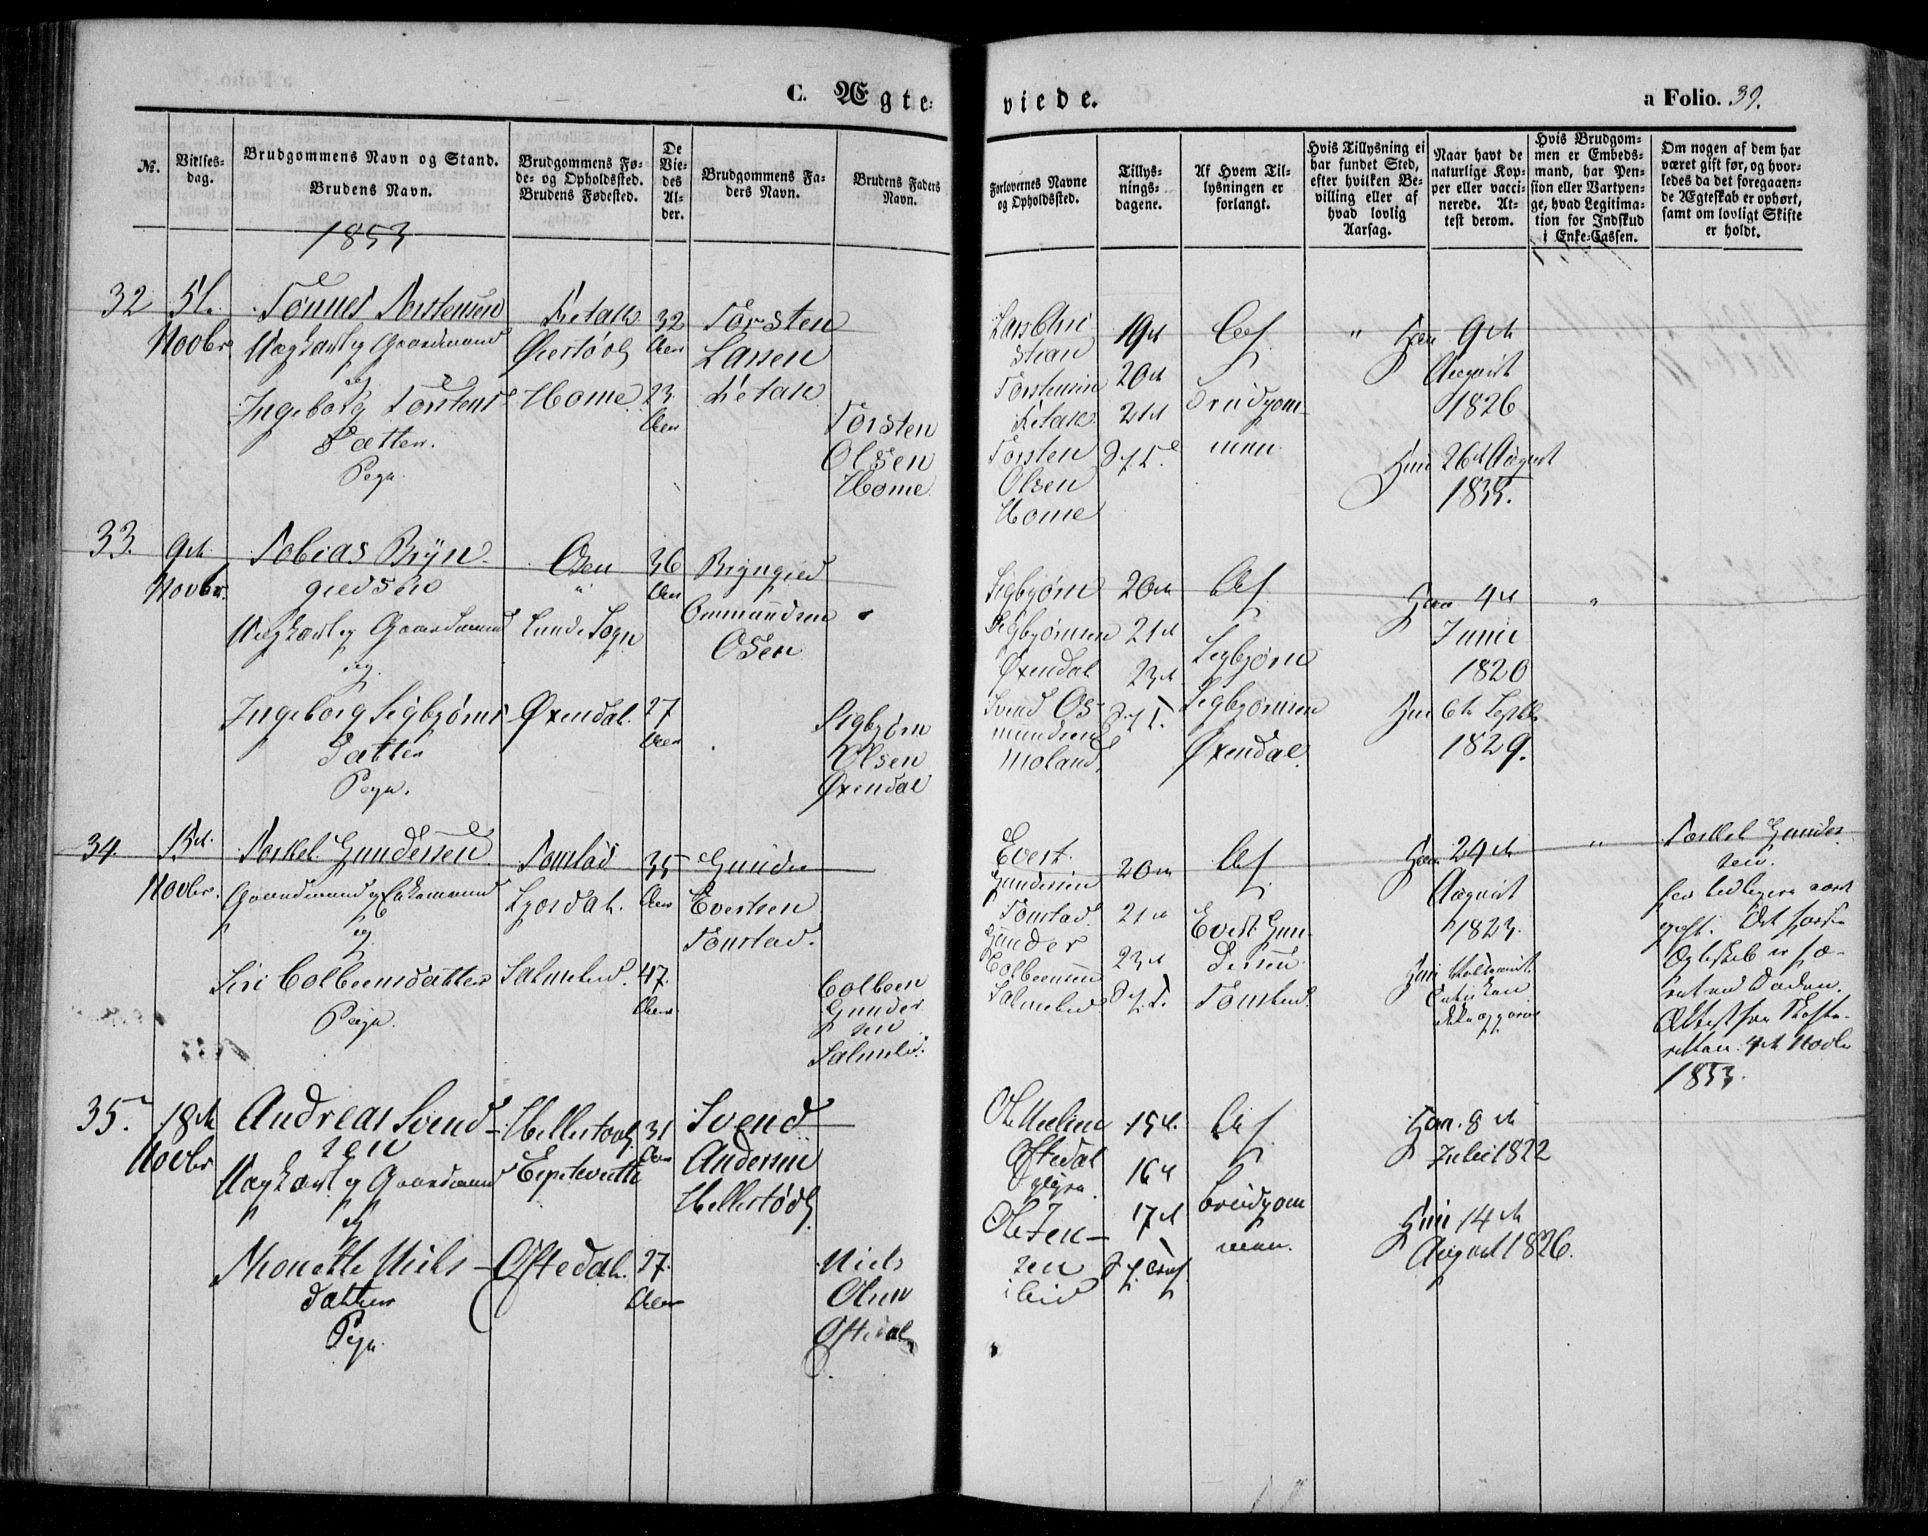 C. Ægte-
viede.
a Folio. 39.
No.
Vielses-
dag.
Brudgommens Navn og Stand.
Brudens Navn.
Brudgommens Fø-
de- og Opholdssted.
Brudens Fødested.
De
Vie-
des
Al-
der.
Brudgommens Fa-
ders Navn.
Brudens Faders
Navn.
Forlovernes Navne
og Opholdssted.
Tillys-
nings-
dagene.
Af Hvem Til-
lysningen er
forlangt.
Hvis Tillysning ei
har fundet Sted,
efter hvilken Be-
villing eller af
hvad lovlig
Aarsag.
Naar havt de
naturlige Kop-
per eller vacci-
nerede. At-
test derom.
Hvis Brudgom-
men er Embeds-
mand, har Pen-
sion eller Vartpen-
ge, hvad Legitima-
tion for Indskud
i Enke-Cassen.
Om nogen af dem har
været gift før, og hvor-
ledes da det foregaaen-
de Ægteskab er ophørt,
samt om lovligt Skifte
er holdt.
1853
32
Novbr
Tønnes Torstensen
Ungkarl og Gaardmand
og
Ingeborg Torstens
Datter.
Pige.
Ketak
Øiestøvl
Home.
32
Aar
23.
Aar
Torsten
Larsen
Ketak
Torsten
Olsen
Home.
Lars Chri
stian
Torstensen
Ketak
Torsten
Olsen
Home
19de
20de
21de
S. e. T.
Af
Brudgom-
men.
"
Han 9de
August
1826
Hun 26de August
1835.
33.
9de
Novbr.
Tobias Bryn-
gieldsen
Ungkarl og Gaardmand
og
Ingeborg Sigbjørns
Datter
Pige.
Osen
"
Lunde Sogn
Øxendal.
36
Aar
27
Aar
Bryngield
Ommundsen
Osen
Sigbjørn
Olsen
Øxendal
Sigbjørn
Sigbjørnsen
Øxendal
Svend Os-
mundsen
Moland.
20de
21de
23de
S. e. T.
Af
Sigbjørn
Sigbjørnsen
Øxendal.
Han 4de
Junii
1820
Hun 6te Septbr
1829.
"
34.
Novbr.
Torkel Gundersen
Gaardmand og Enkemand
og
Siri Colbeensdatter
Pige.
Tonstad
Salmelid.
35
Aar
47.
Aar
Gunder
Evertsen
Tonstad.
Colbeen
Gunder
sen
Salmelid.
Evert
Gundersen
Tonstad
Gunder
Colbeensen
Salmelid
20de
21de
23de
S. e. T.
Af
Evert Gun-
dersen
Tonstad.
Han 24de
August
1823.
Hun
ikke opgives
"
Torkel Gunder
sen.
har tidligere været
gift. Det første
Ægteskab er hæ-
vet ved Døden.
Attest fra Skifte-
retten 4de Novbr
1853.
35.
18de
Novbr
Andreas Svend-
sen
Ungkarl og Gaardmand
og
Niels-
datter
Pige.
Hellestøvl
Øftedal.
31
Aar
27.
Aar
Svend
Andersen
Hellestøvl
Niels
Olsen
Øftedal
Øftedal
Ole Jen-
sen
ibid
15de
16de
17de
Af
Brudgom
men.
Han 8de
Julii 1822
Hun 14de
August 1826.